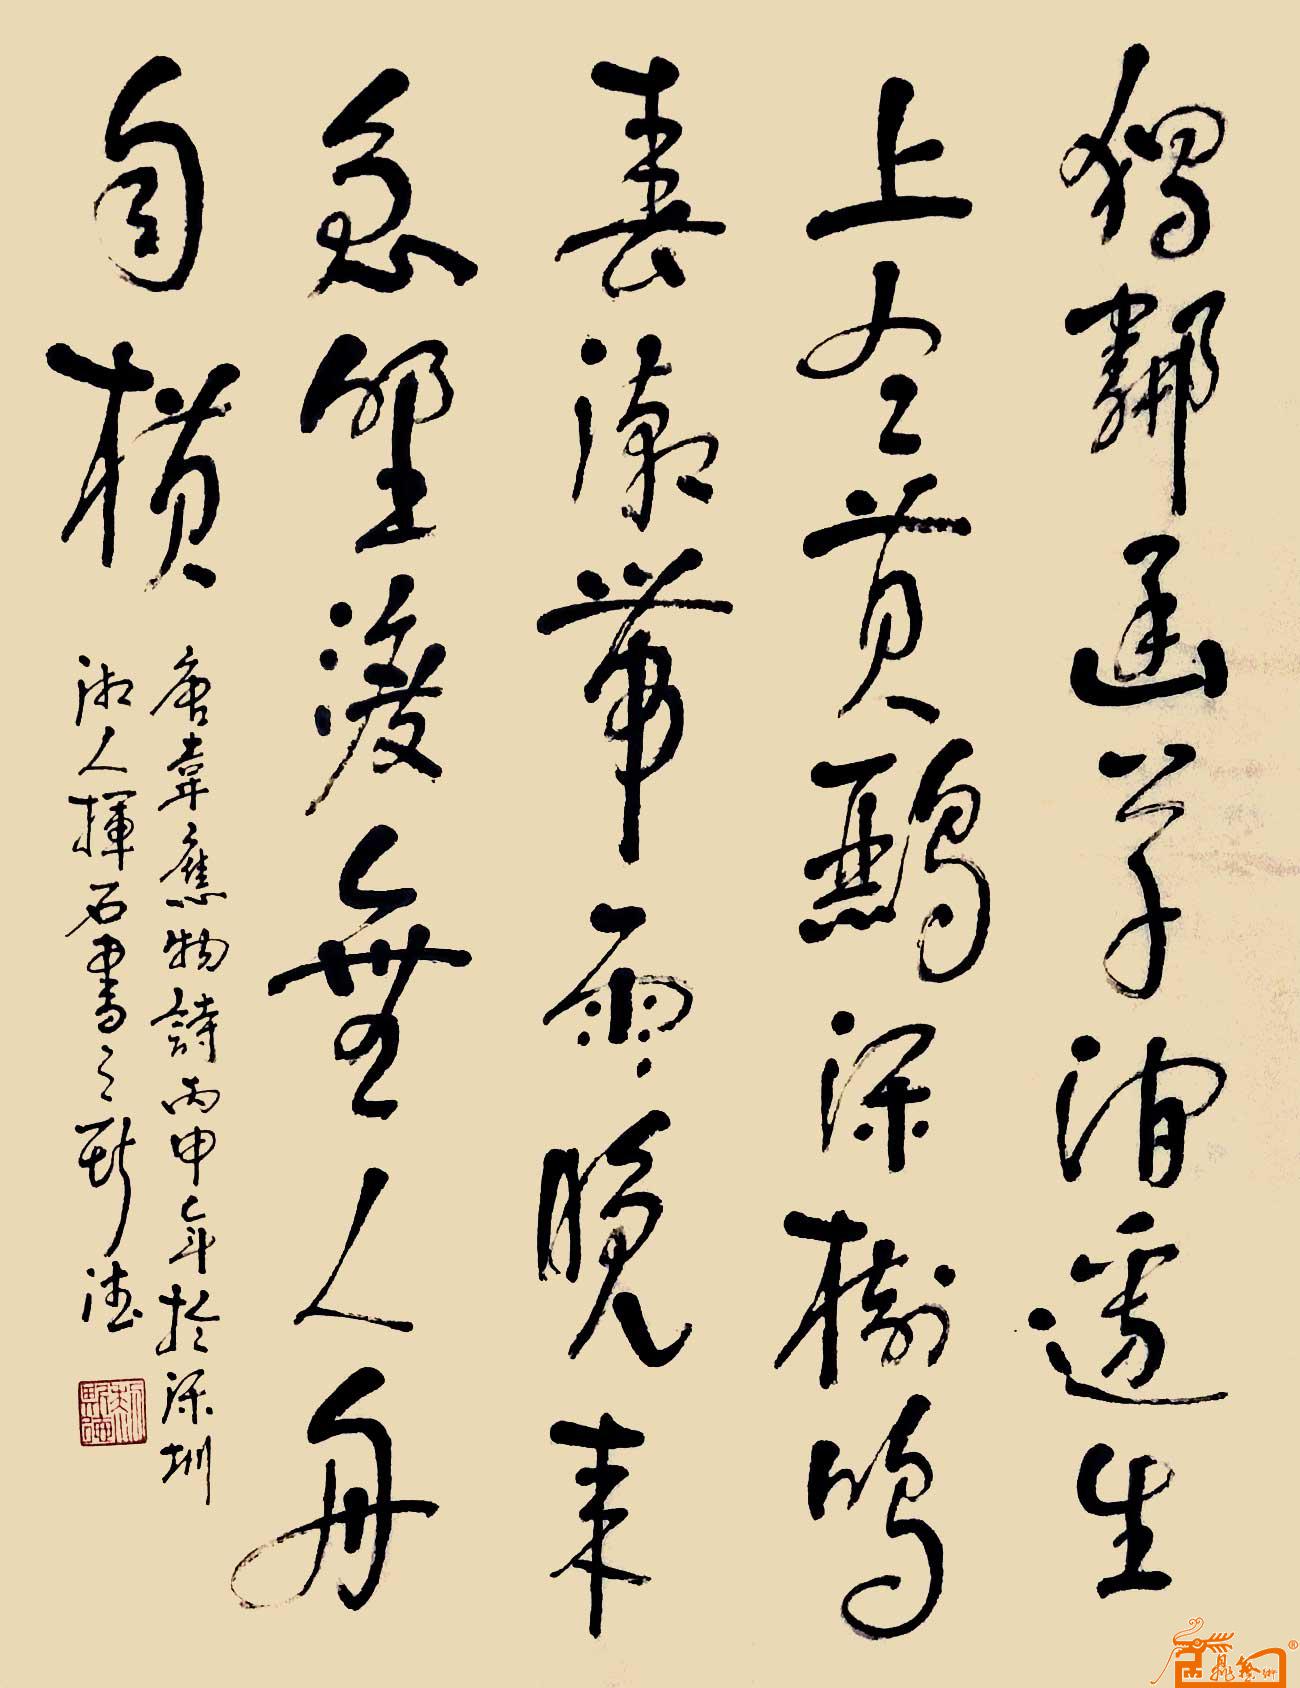 獨鄰幽草澗邊生
上有黃鸝深樹鳴
春潮帶雨晚來
急野渡無人舟
自橫
唐韋應物詩丙申年於深圳
湘人揮石書之